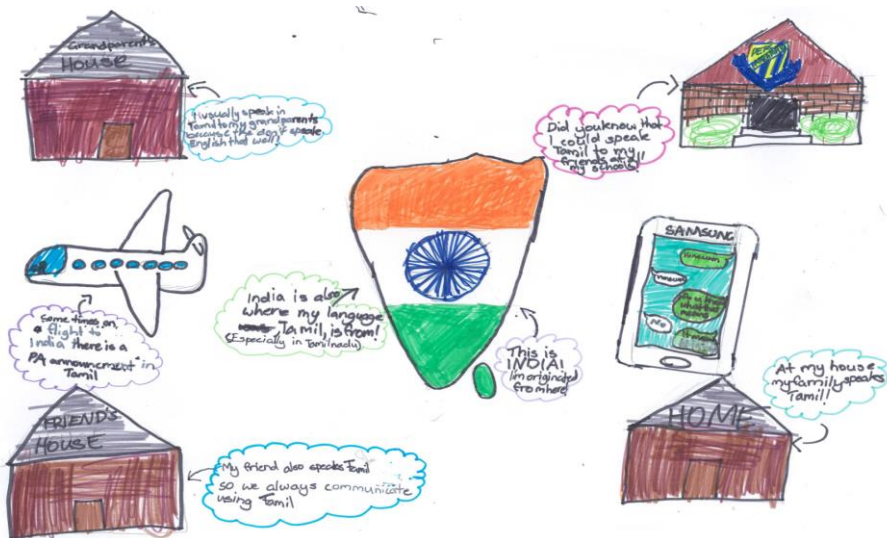 Grandparent's
HOUSE
I usually speak in
Tamil to my grandparents
because the don't speak
English that well!
Did you know that
I could speak
Tamil to my
friends at all
my schools!
Some times on
a flight to
India there is a
PA announcement in
Tamil
India is also
where my language
Tamil, is from!
(Especially in Tamilnadu)
This is
INDIA!
I'm originated
from here!
SAMSUNG
No
FRIEND'S
HOUSE
My friend also speaks Tamil
so we always communicate
using Tamil
HOME
At my house
my family speaks
Tamil!